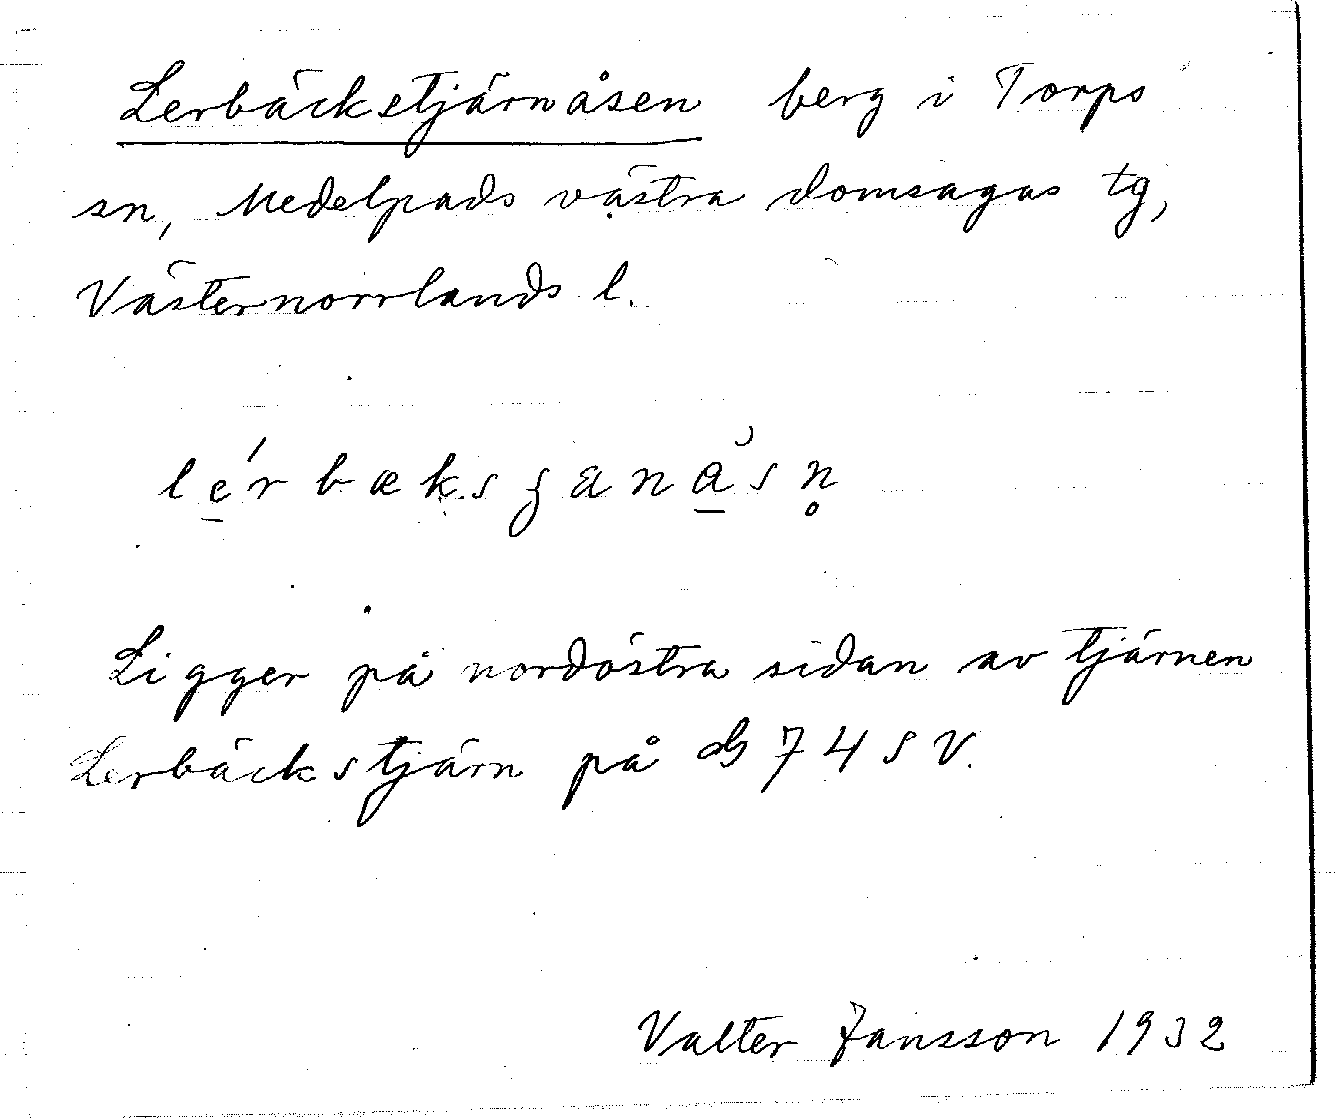 Lerbäckstjärnåsen berg i Torps
sn, Medelpads västra domsagas tg,
Västernorrlands l.
Ligger på nordöstra sidan av tjärnen
Lerbäckstjärn på gb 74 SV.
Valter Jansson 1932